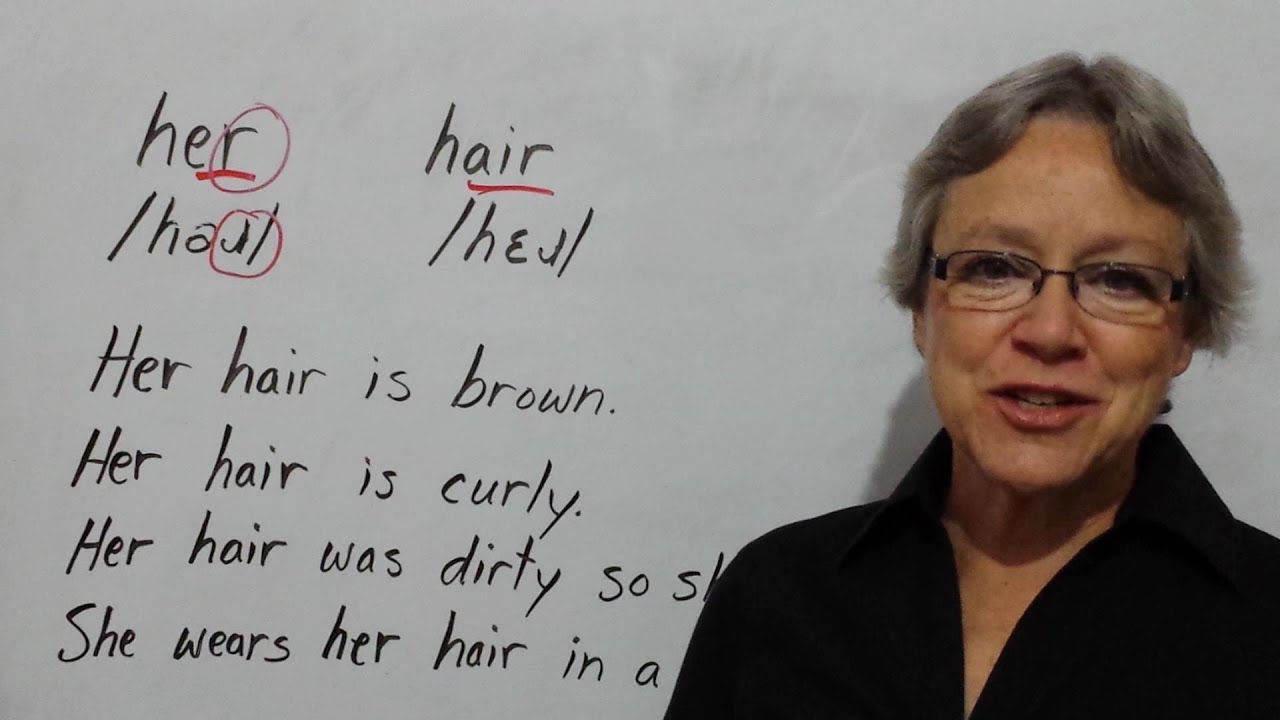 her hair
/həɹ/ /hɛɹ/
Her hair is brown.
Her hair is curly.
Her hair was dirty so
She wears her hair in a